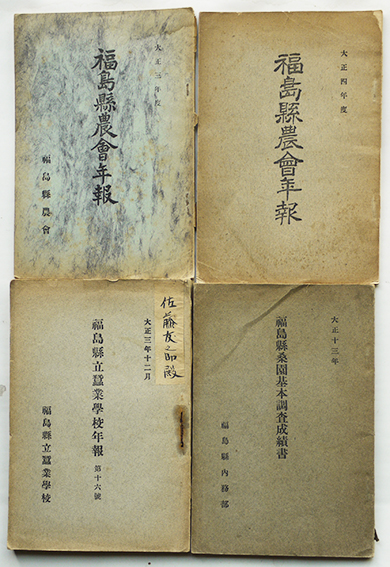 大正三年度
福島縣農會年報
福島縣農會
大正四年度
福島縣農會年報
佐藤友之助殿
大正三年十二月
福島縣立蠶業學校年報 第十六號
福島縣立蠶業學校
大正十三年
福島縣桑園基本調査成績書
福島縣內務部